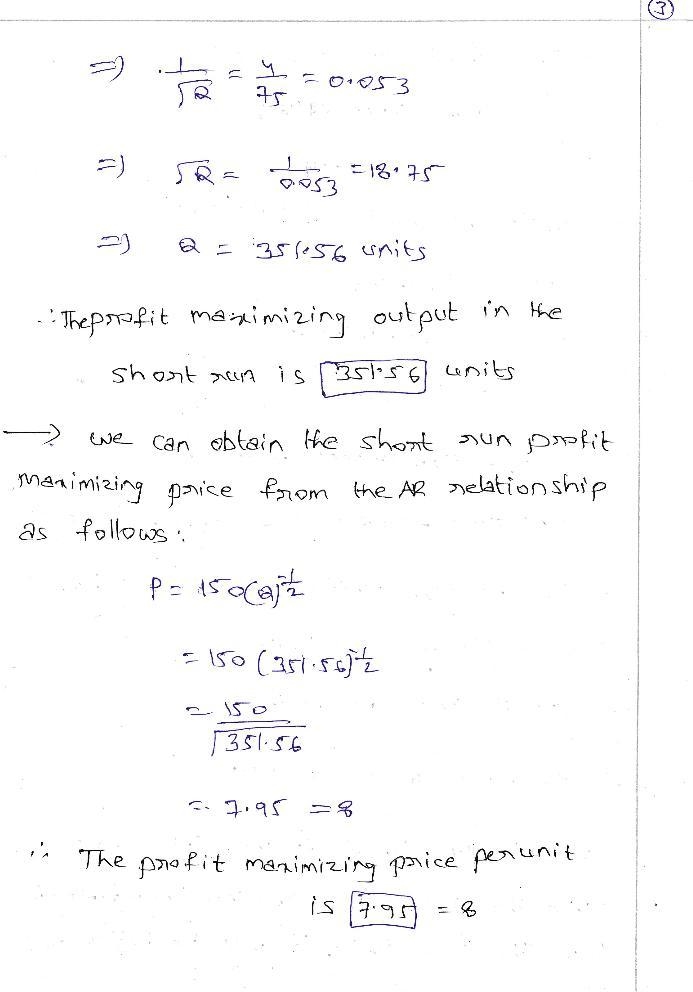 ③
⇒ 1/√Q = 4/75 = 0.053
⇒ √Q = 1/0.053 = 18.75
⇒ Q = 351.56 units
∴ The profit maximizing output in the
short run is 351.56 units
→ we can obtain the short run profit
maximizing price from the AR relationship
as follows:
P = 150(Q)^-1/2
= 150 (351.56)^-1/2
= 150/√351.56
= 7.95 = 8
∴ The profit maximizing price per unit
is 7.95 = 8